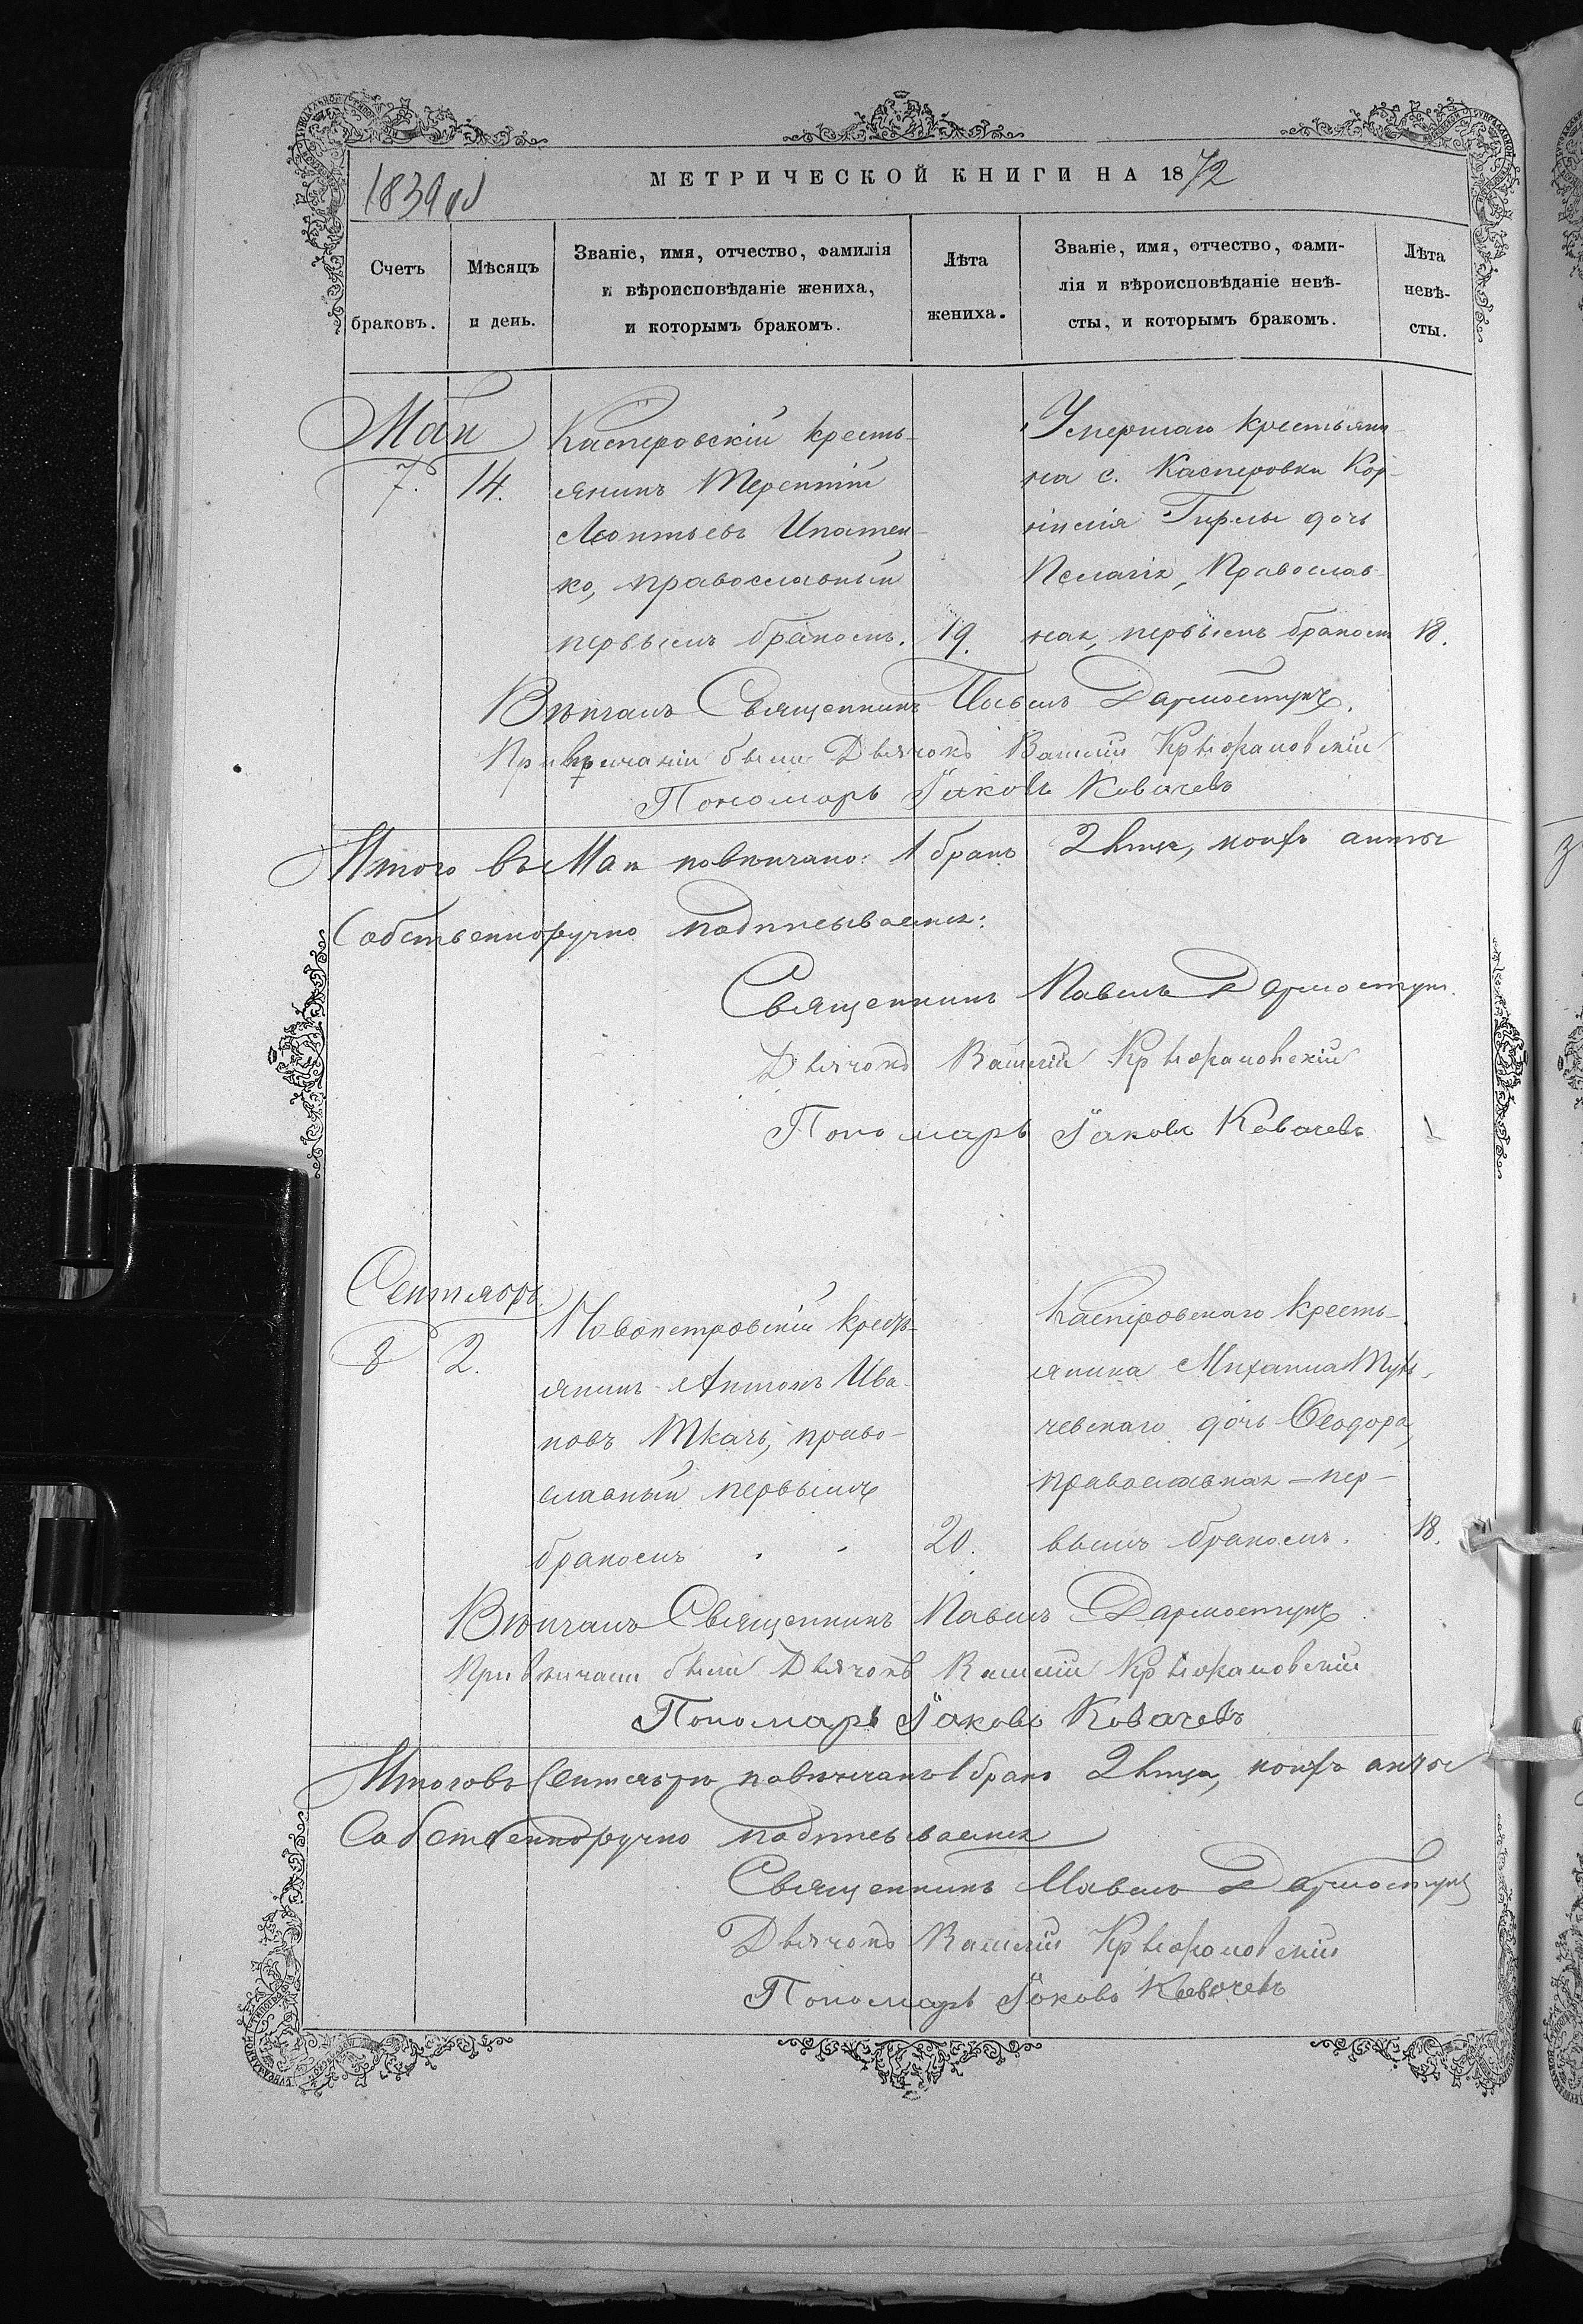 1839 об
МЕТРИЧЕСКОЙ КНИГИ НА 1872
Счетъ браковъ.
Мѣсяцъ и день.
Званіе, имя, отчество, фамилія
и вѣроисповѣданіе жениха,
и которымъ бракомъ.
Лѣта жениха.
Званіе, имя, отчество, фами-
лія и вѣроисповѣданіе невѣ-
сты, и которымъ бракомъ.
Лѣта невѣ-
сты.
Май
7. 14.
Касперовскій кресть-
янинъ Терентій
Леонтьевъ Ипатен-
ко, православный
первымъ бракомъ. 19.
Умершаго крестьяни-
на с. Касперовки Кор-
нилія Гирлы дочь
Пелагія, Православ-
ная, первымъ бракомъ 18.
Вѣнчалъ Священникъ Павелъ Дармостукъ.
При вѣнчаніи были Дьячокъ Василій Крыжановскій
Пономарь Іаковъ Ковачевъ
Итого въ Маѣ повѣнчано: 1 бракъ 2 лица,
Собственноручно подписываемся:
Священникъ Павелъ Дармостукъ.
Дьячокъ Василій Крыжановскій
Пономарь Іаковъ Ковачевъ
Сентябрь
8 2.
Новопетровскій кресть-
янинъ Антонъ Ива-
новъ Ткачъ, право-
славный первымъ
бракомъ 20.
Касперовскаго кресть-
янина Михаила
чевскаго дочь Феодора,
православная – пер-
вымъ бракомъ. 18.
Вѣнчалъ Священникъ Павелъ Дармостукъ
При вѣнчаніи были Дьячокъ Василій Крыжановскій
Пономарь Іаковъ Ковачевъ
Итого въ Сентябрѣ повѣнчанъ 1 бракъ 2 лица,
Собственноручно подписываемся
Священникъ Павелъ Дармостукъ
Дьячокъ Василій Крыжановскій
Пономарь Іаковъ Ковачевъ